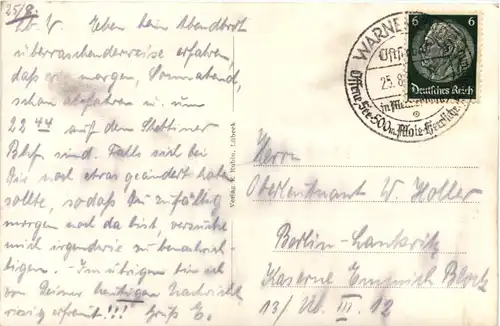 25/8.
Lb. V. Eben beim Abendbrot
überraschenderweise erfahren,
daß wir morgen, Sonnabend,
schon abfahren u. um
22 44 auf dem Stettiner
Bhf sind. Falls sich bei
Dir noch etwas geändert haben
sollte, sodaß Du zufällig
morgen noch da bist, versuche
mich irgendwie zu benachrich-
tigen. Im übrigen bin ich
von Deiner heutigen Nachricht
riesig erfreut!!! Gruß
Verlag Rubin, Lübeck
WARNE
Ostsee
25. 8.
in Mecklenburg
Offene See 500 m Mole Herrliche
6 6
Deutsches Reich
Herrn
Oberleutnant W. Holler
Berlin-Lankwitz
Kaserne Block
13/ III. 12